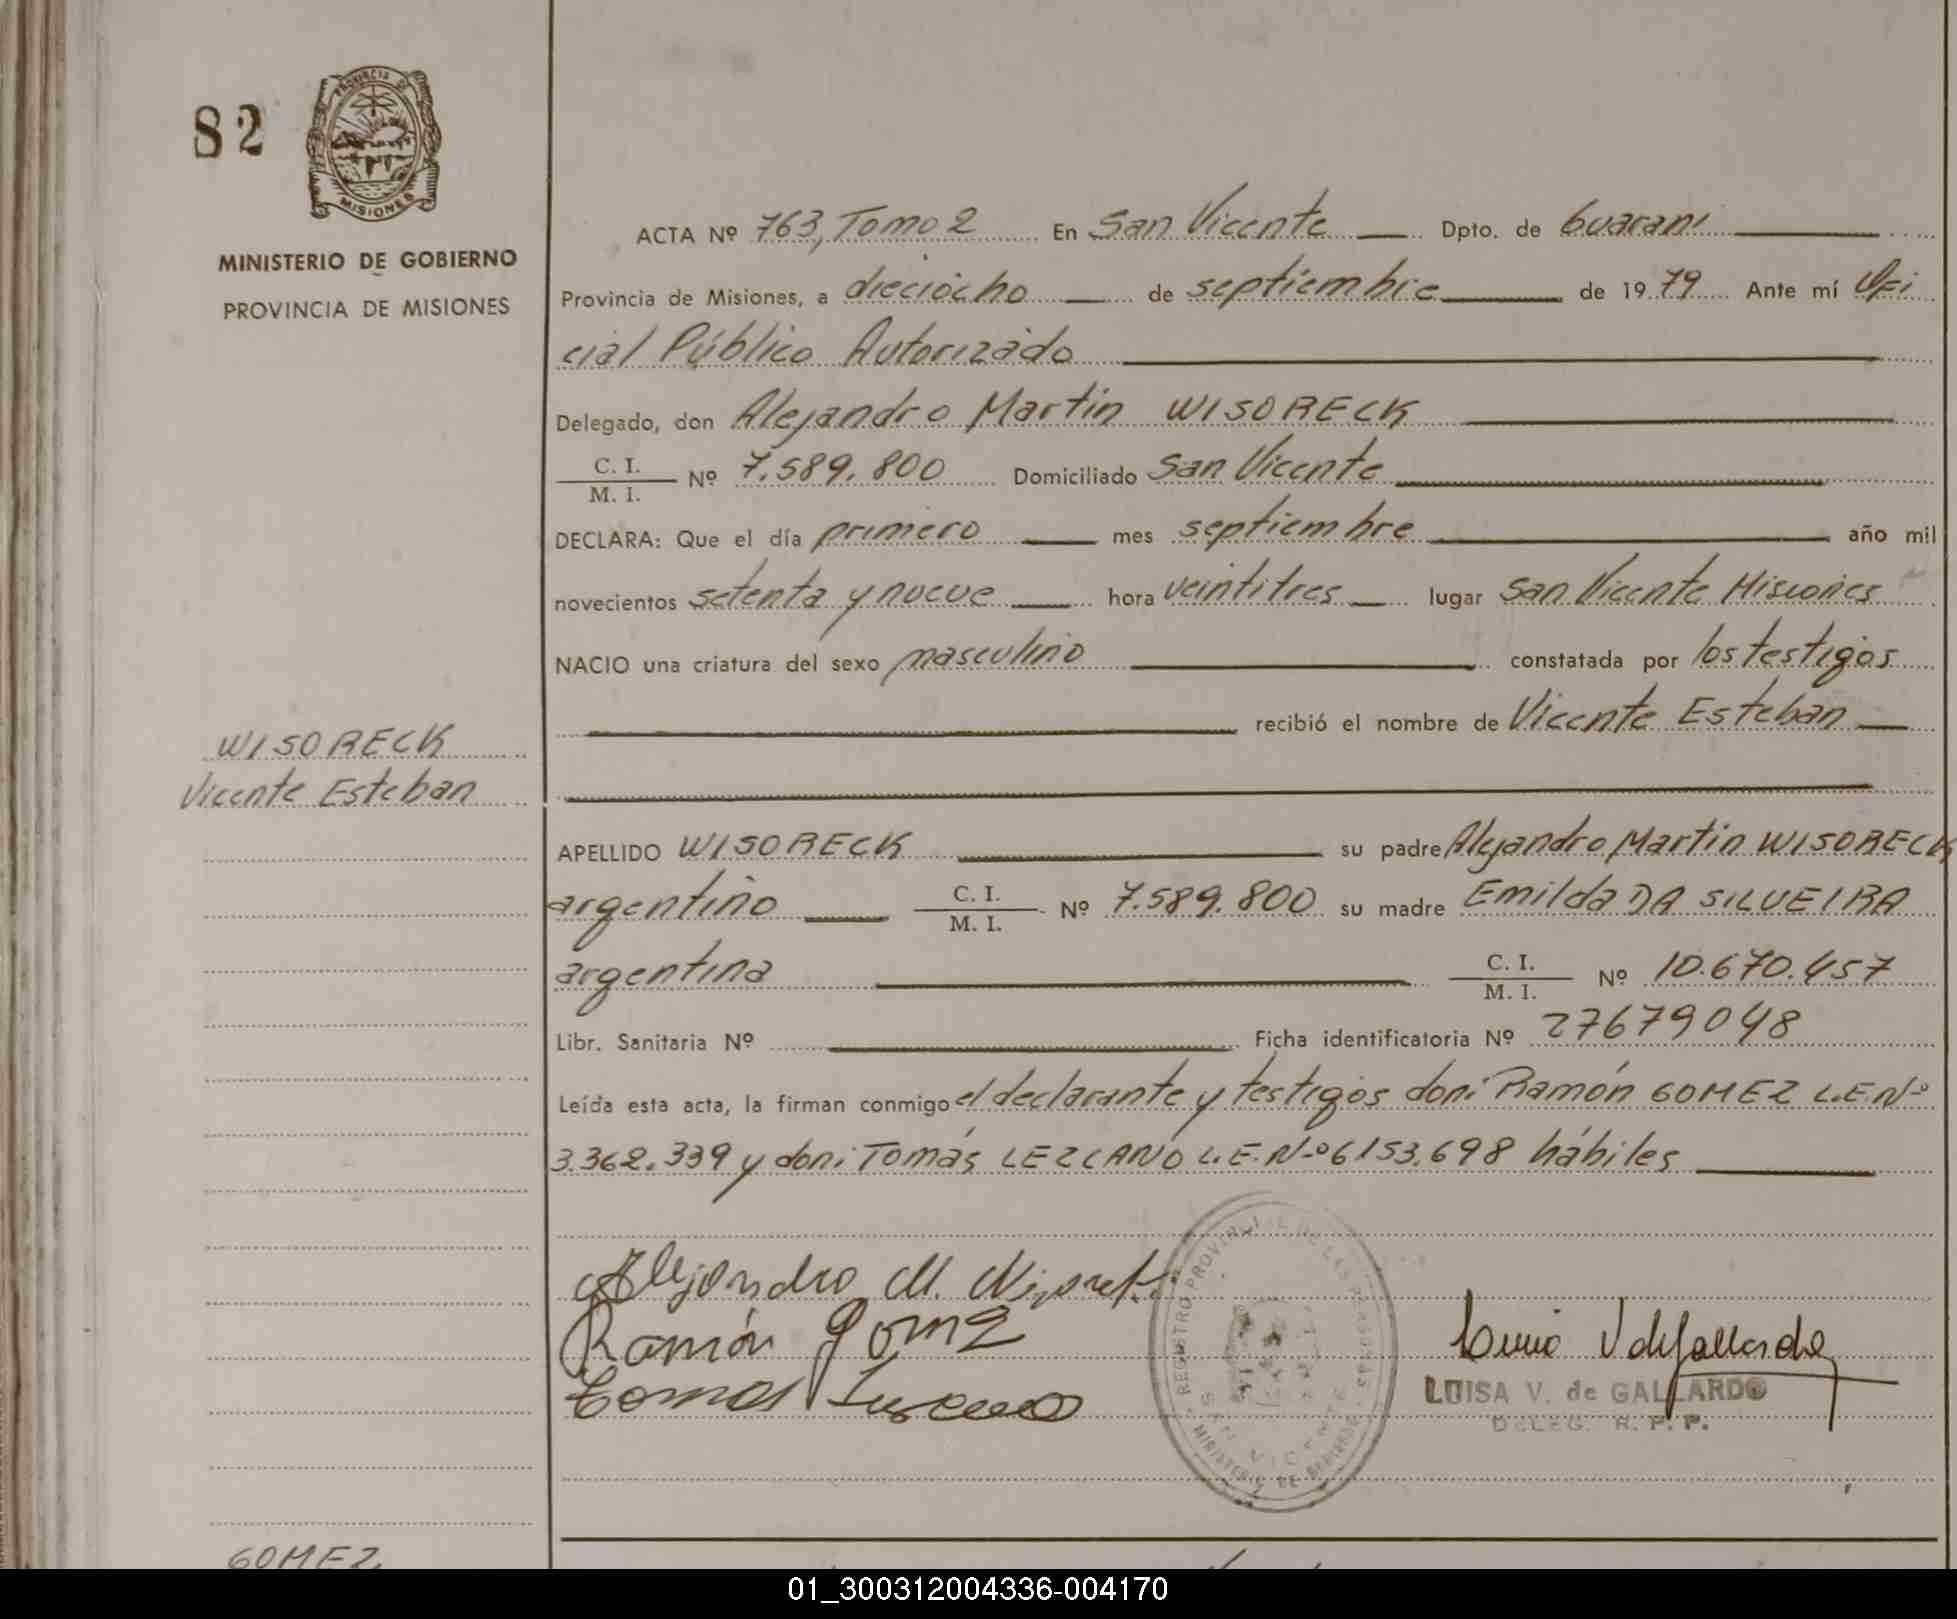 82
PROVINCIA DE
MISIONES
MINISTERIO DE GOBIERNO
PROVINCIA DE MISIONES
ACTA Nº 763, Tomo 2 En San Vicente Dpto. de Guaraní
Provincia de Misiones, a dieciocho de septiembre de 1979 Ante mí Ofi
cial Público Autorizado
Delegado, don Alejandro Martin WISORECK
C. I.
M. I. Nº 7.589.800 Domiciliado San Vicente
DECLARA: Que el día primero mes septiembre año mil
novecientos setenta y nueve hora veintitres lugar San Vicente Misiones
NACIO una criatura del sexo masculino constatada por los testigos
recibió el nombre de Vicente Esteban
WISORECK
Vicente Esteban
APELLIDO WISORECK su padre Alejandro Martin WISORECK
argentino C. I.
M. I. Nº 7.589.800 su madre Emilda DA SILVEIRA
argentina C. I.
M. I. Nº 10.670.457
Libr. Sanitaria Nº Ficha identificatoria Nº 27679048
Leída esta acta, la firman conmigo el declarante y testigos don: Ramón GOMEZ L.E.Nº
3.362.339 y don: Tomás LEZCANO L.E.Nº 6153.698 hábiles
Alejandro M.
Ramón Gomez
Tomas
REGISTRO PROVINCIAL DE LAS PERSONAS
SAN VICENTE
MINISTERIO DE GOBIERNO
LUISA V. de GALLARDO
DELEG. R. P. P.
GOMEZ
01_300312004336-004170